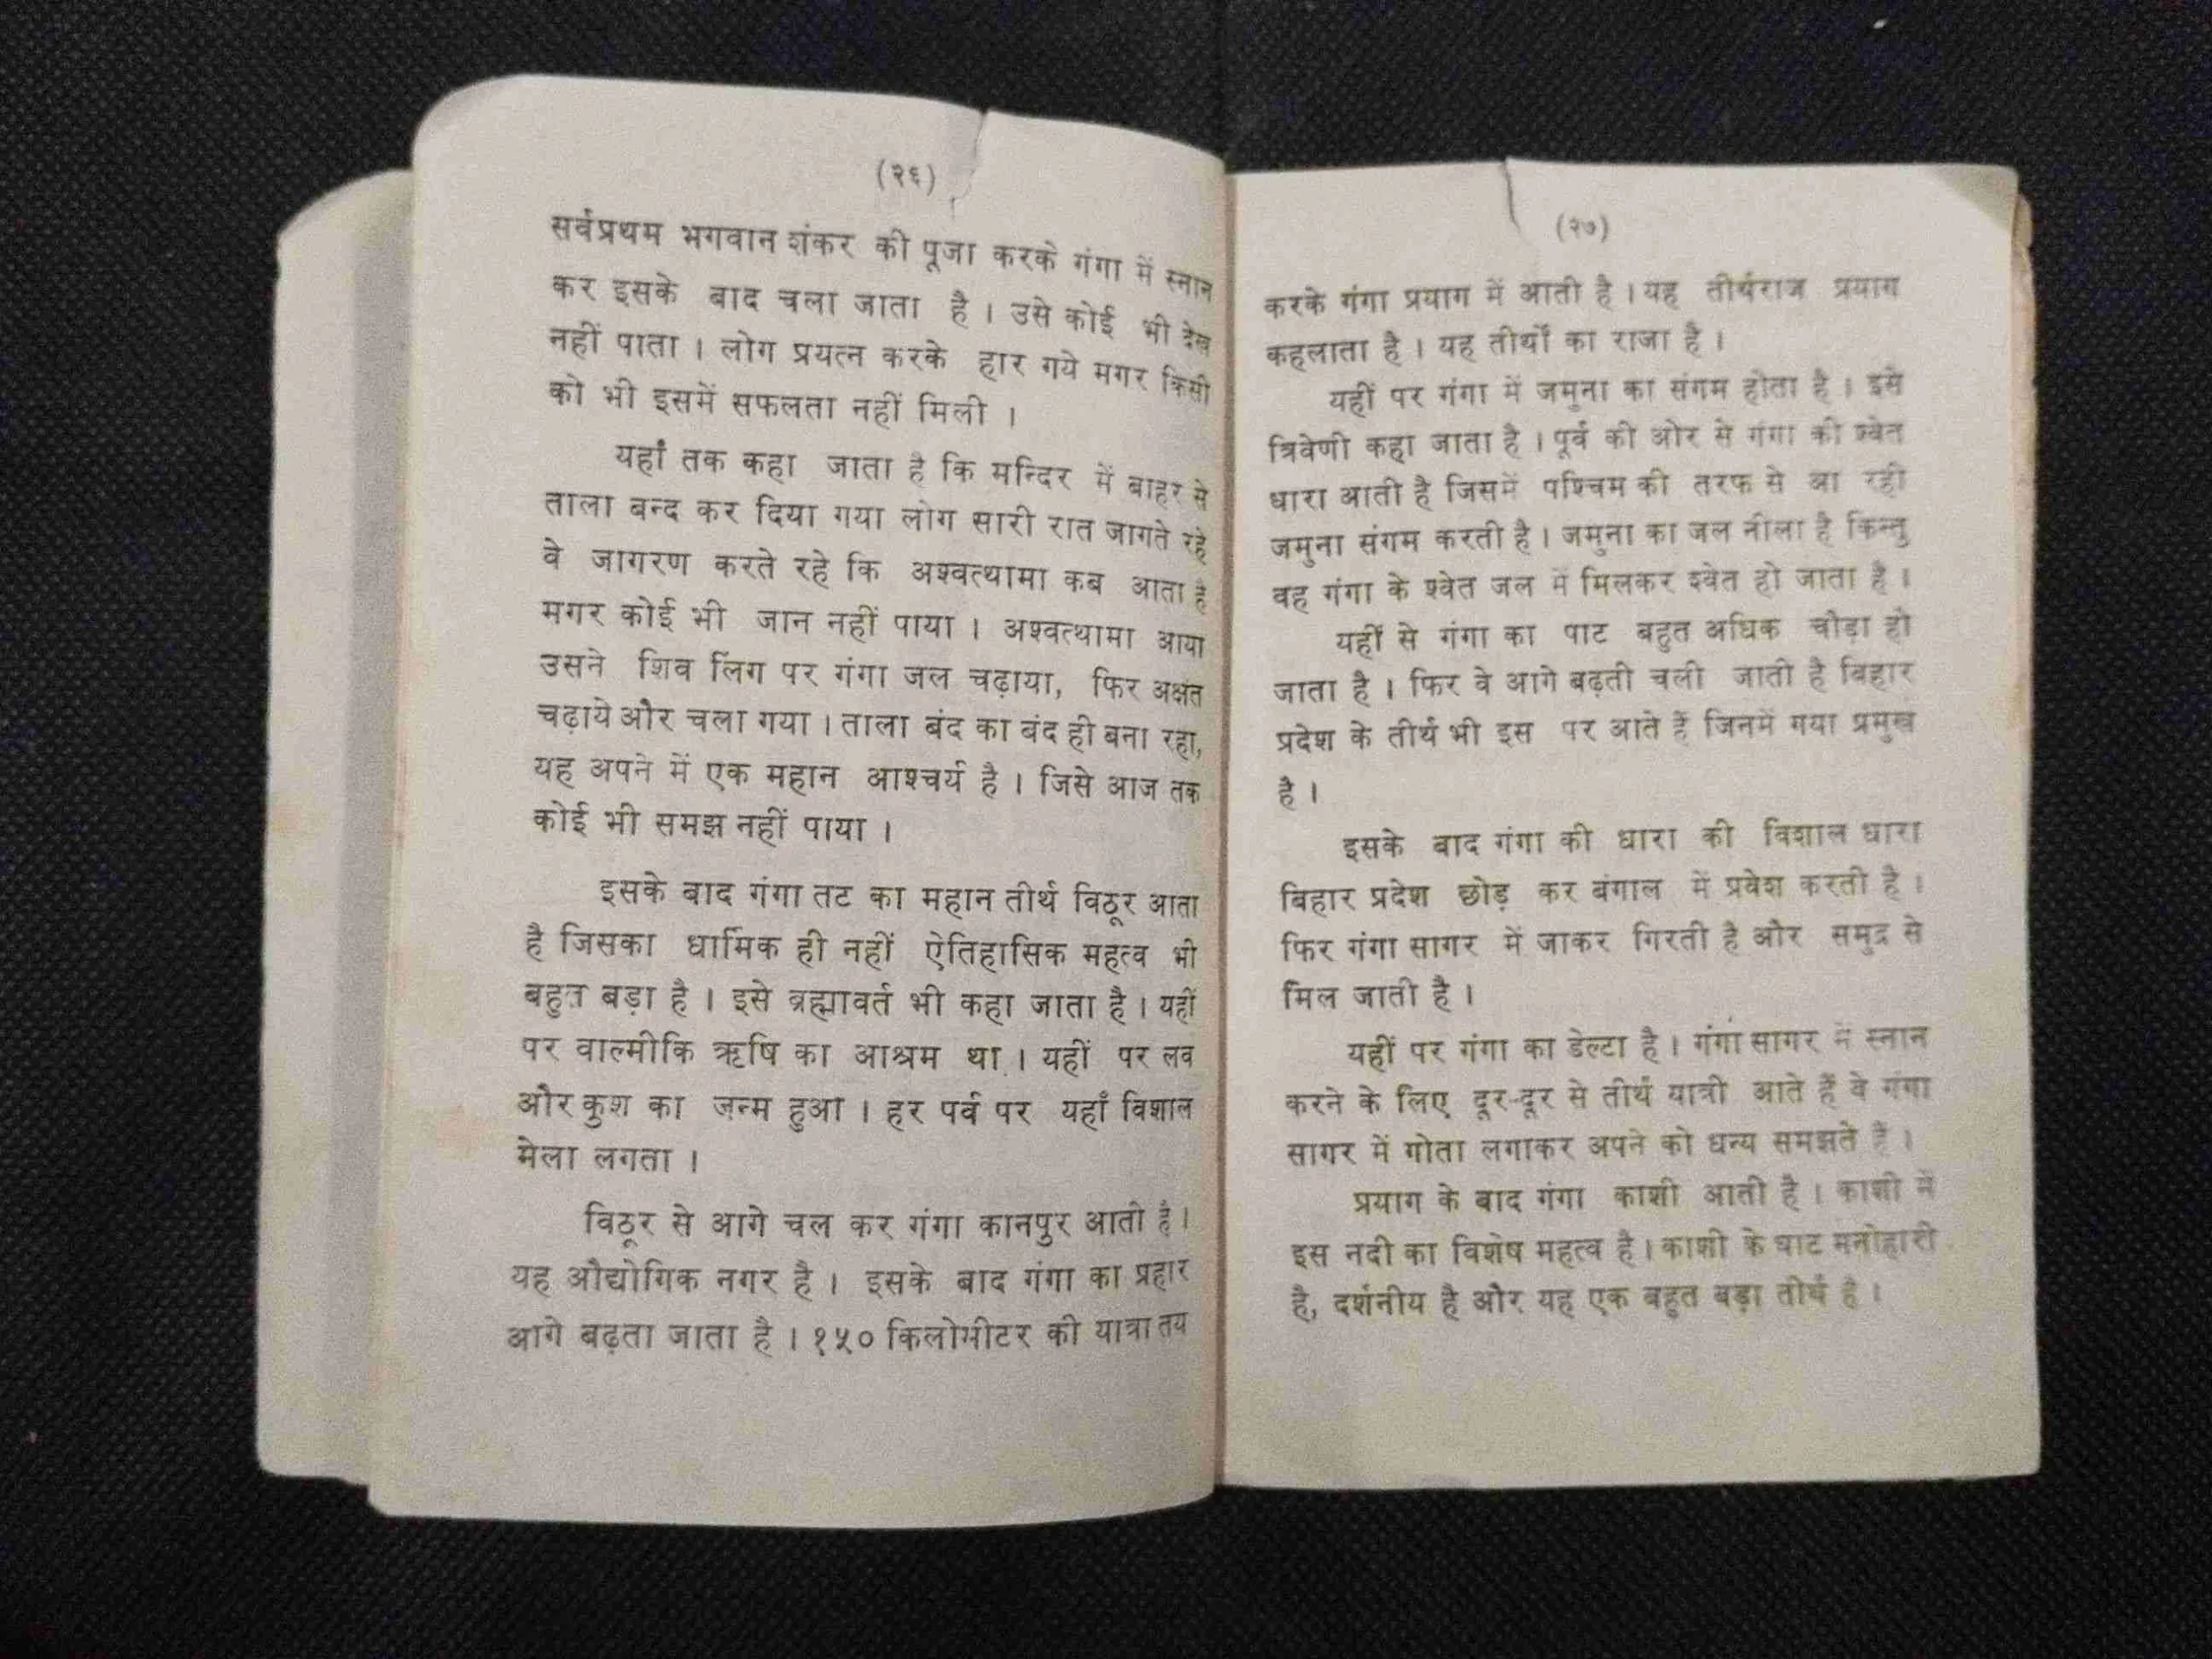 (२६)
सर्वप्रथम भगवान शंकर की पूजा करके गंगा में स्नान
कर इसके बाद चला जाता है । उसे कोई भी देख
नहीं पाता । लोग प्रयत्न करके हार गये मगर किसी
को भी इसमें सफलता नहीं मिली ।
यहाँ तक कहा जाता है कि मन्दिर में बाहर से
ताला बन्द कर दिया गया लोग सारी रात जागते रहे
वे जागरण करते रहे कि अश्वत्थामा कब आता है
मगर कोई भी जान नहीं पाया । अश्वत्थामा आया
उसने शिव लिंग पर गंगा जल चढ़ाया, फिर अक्षत
चढ़ाये और चला गया । ताला बंद का बंद ही बना रहा,
यह अपने में एक महान आश्चर्य है । जिसे आज तक
कोई भी समझ नहीं पाया ।
इसके बाद गंगा तट का महान तीर्थ विठूर आता
है जिसका धार्मिक ही नहीं ऐतिहासिक महत्व भी
बहुत बड़ा है । इसे ब्रह्मावर्त भी कहा जाता है । यहीं
पर वाल्मीकि ऋषि का आश्रम था । यहीं पर लव
और कुश का जन्म हुआ । हर पर्व पर यहाँ विशाल
मेला लगता ।
विठूर से आगे चल कर गंगा कानपुर आती है ।
यह औद्योगिक नगर है । इसके बाद गंगा का प्रहार
आगे बढ़ता जाता है । १५० किलोमीटर की यात्रा तय
(२७)
करके गंगा प्रयाग में आती है । यह तीर्थराज प्रयाग
कहलाता है । यह तीर्थों का राजा है ।
यहीं पर गंगा में जमुना का संगम होता है । इसे
त्रिवेणी कहा जाता है । पूर्व की ओर से गंगा की श्वेत
धारा आती है जिसमें पश्चिम की तरफ से आ रही
जमुना संगम करती है । जमुना का जल नीला है किन्तु
वह गंगा के श्वेत जल में मिलकर श्वेत हो जाता है ।
यहीं से गंगा का पाट बहुत अधिक चौड़ा हो
जाता है । फिर वे आगे बढ़ती चली जाती है बिहार
प्रदेश के तीर्थ भी इस पर आते हैं जिनमें गया प्रमुख
है ।
इसके बाद गंगा की धारा की विशाल धारा
बिहार प्रदेश छोड़ कर बंगाल में प्रवेश करती है ।
फिर गंगा सागर में जाकर गिरती है और समुद्र से
मिल जाती है ।
यहीं पर गंगा का डेल्टा है । गंगा सागर में स्नान
करने के लिए दूर-दूर से तीर्थ यात्री आते हैं वे गंगा
सागर में गोता लगाकर अपने को धन्य समझते हैं ।
प्रयाग के बाद गंगा काशी आती है । काशी में
इस नदी का विशेष महत्व है । काशी के घाट मनोहारी
है, दर्शनीय है और यह एक बहुत बड़ा तीर्थ है ।